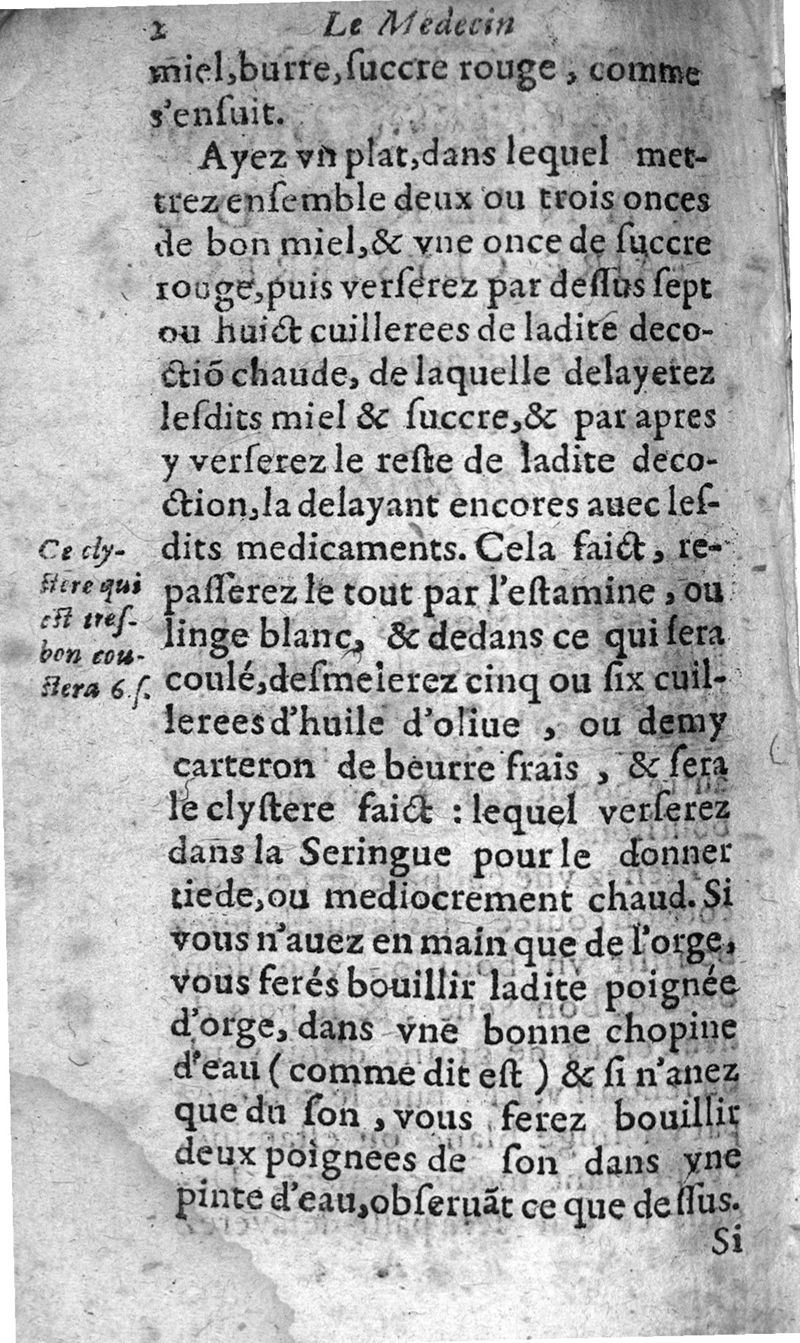 2 Le Medecin
miel, burre, ſuccre rouge, comme
s'enſuit.
Ayez vn plat, dans lequel met-
trez enſemble deux ou trois onces
de bon miel, & vne once de ſuccre
rouge, puis verſerez par deſſus ſept
ou huict cuillerees de ladite deco-
ctiõ chaude, de laquelle delayerez
leſdits miel & ſuccre, & par apres
y verſerez le reſte de ladite deco-
ction, la delayant encores auec leſ-
dits medicaments. Cela faict, re-
paſſerez le tout par l'eſtamine, ou
linge blanc, & dedans ce qui ſera
coulé, deſmeſlerez cinq ou ſix cuil-
lerees d'huile d'oliue, ou demy
carteron de beurre frais, & ſera
le clyſtere faict : lequel verſerez
dans la Seringue pour le donner
tiede, ou mediocrement chaud. Si
vous n'auez en main que de l'orge,
vous ferés bouillir ladite poignée
d'orge, dans vne bonne chopine
d'eau ( comme dit eſt ) & ſi n'auez
que du ſon, vous ferez bouillir
deux poignees de ſon dans vne
pinte d'eau, obſeruãt ce que deſſus.
Si
Ce cly-
ſtere qui
eſt treſ-
bon cou-
ſtera 6. ſ.